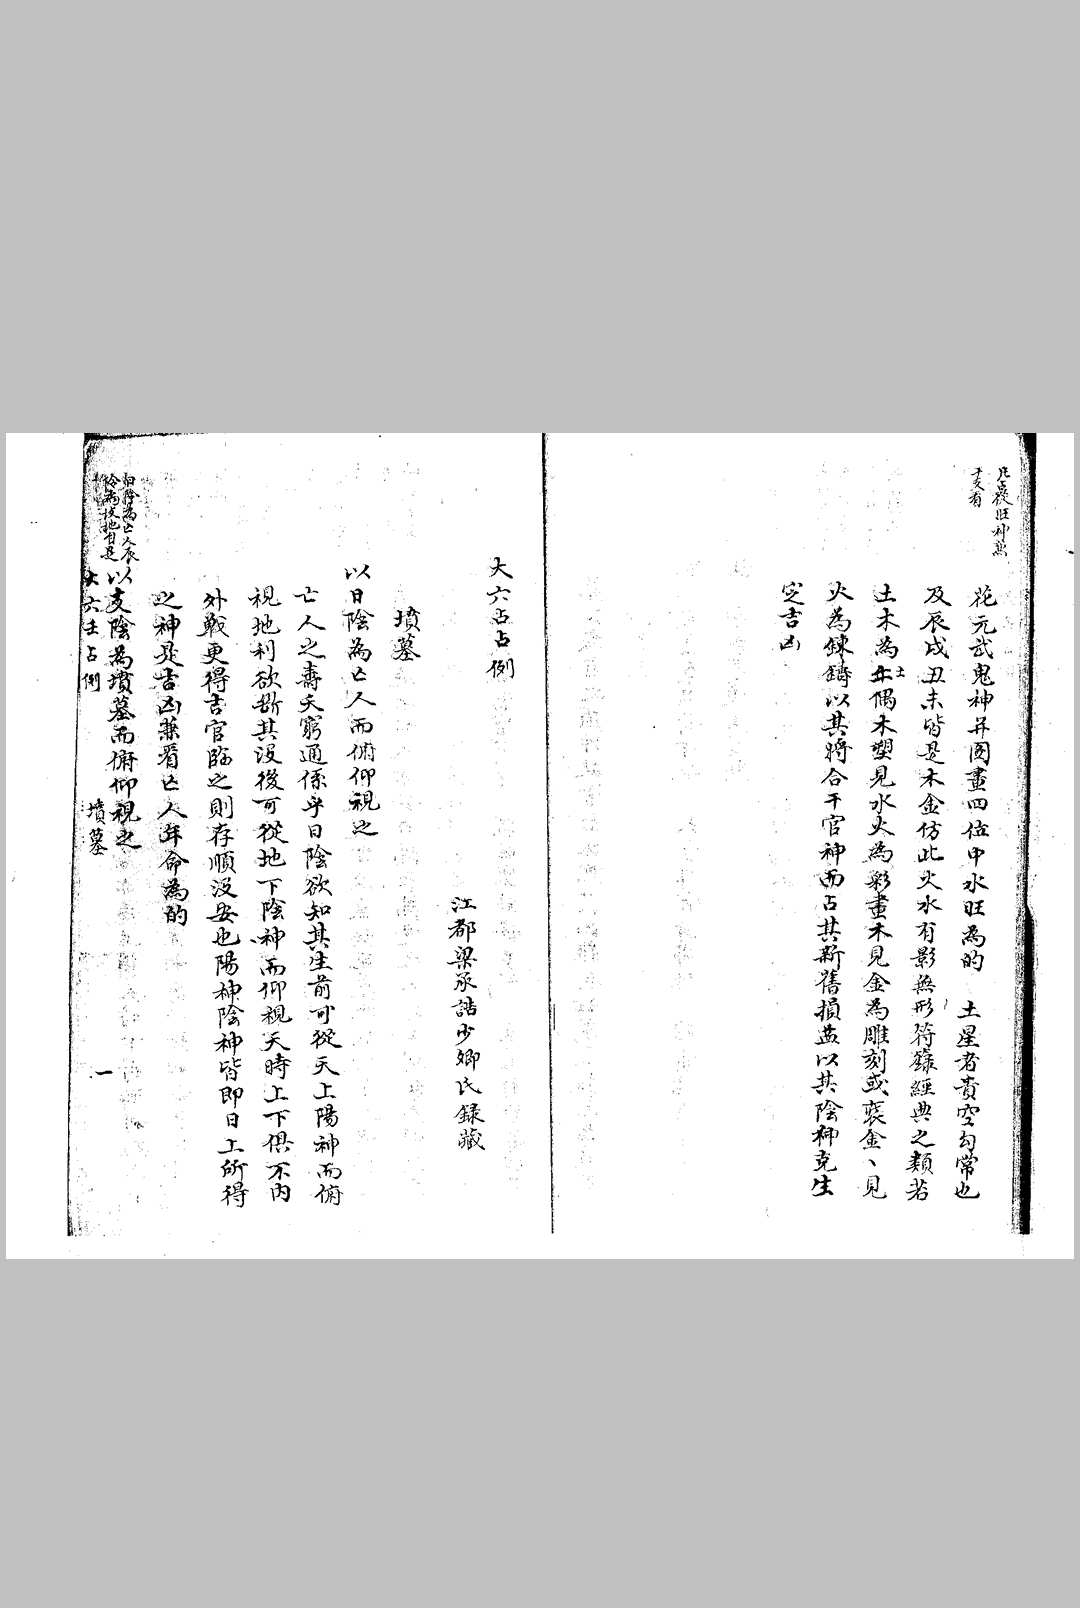 凡占從旺神為
干支有
花元武鬼神并圖畫四估申水旺為的　土星者貴空勾常也
及辰戌丑未皆是木金仿此火水有影無形符籙經典之類若
土木為土偶木塑見水火為彩畫木見金為雕刻或裹金丶見
火為鍊鑄以其將合干官神而占其新舊損益以其陰神克生
定吉凶
大六占占例
江都梁承誥少卿氏錄藏
墳墓
以日陰為亡人而俯仰視之
亡人之壽夭窮通係乎日陰欲知其生前可從天上陽神而俯
視地利欲斷其沒後可從地下陰神而仰視天時上下俱不內
外戰更得吉官臨之則存順沒安也陽神陰神皆即日上所得
之神是吉凶兼看亡人年命為的
日陰為亡人辰
陰為墳地自是
以支陰為墳墓而俯仰視之
大六壬占例
墳墓
一